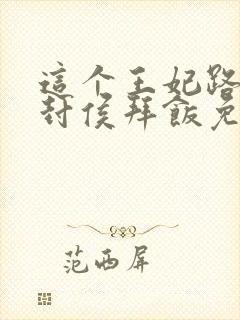 這个王妃路
封侯拜飯免
范西屏